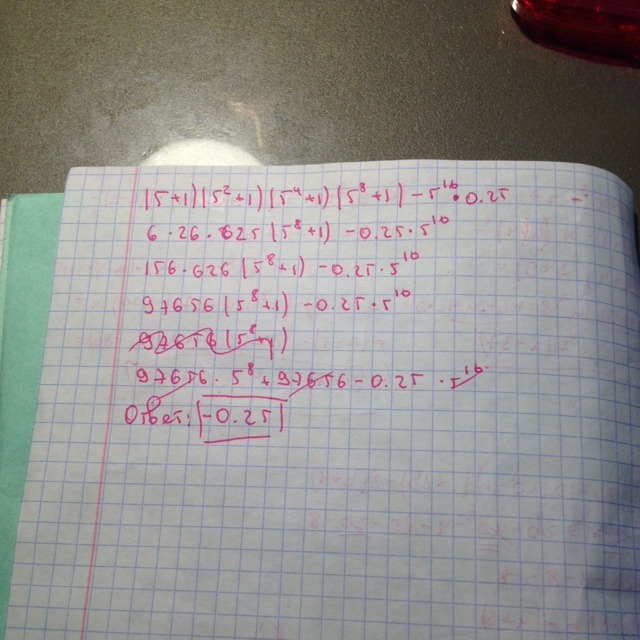 (5+1)(5²+1)(5⁴+1)(5⁸+1)-5¹⁶·0.25
6·26·625(5⁸+1)-0.25·5¹⁶
156·626(5⁸+1)-0.25·5¹⁶
97656(5⁸+1)-0.25·5¹⁶
97656(5⁸+1)
97656·5⁸+97656-0.25·5¹⁶
Ответ: -0.25